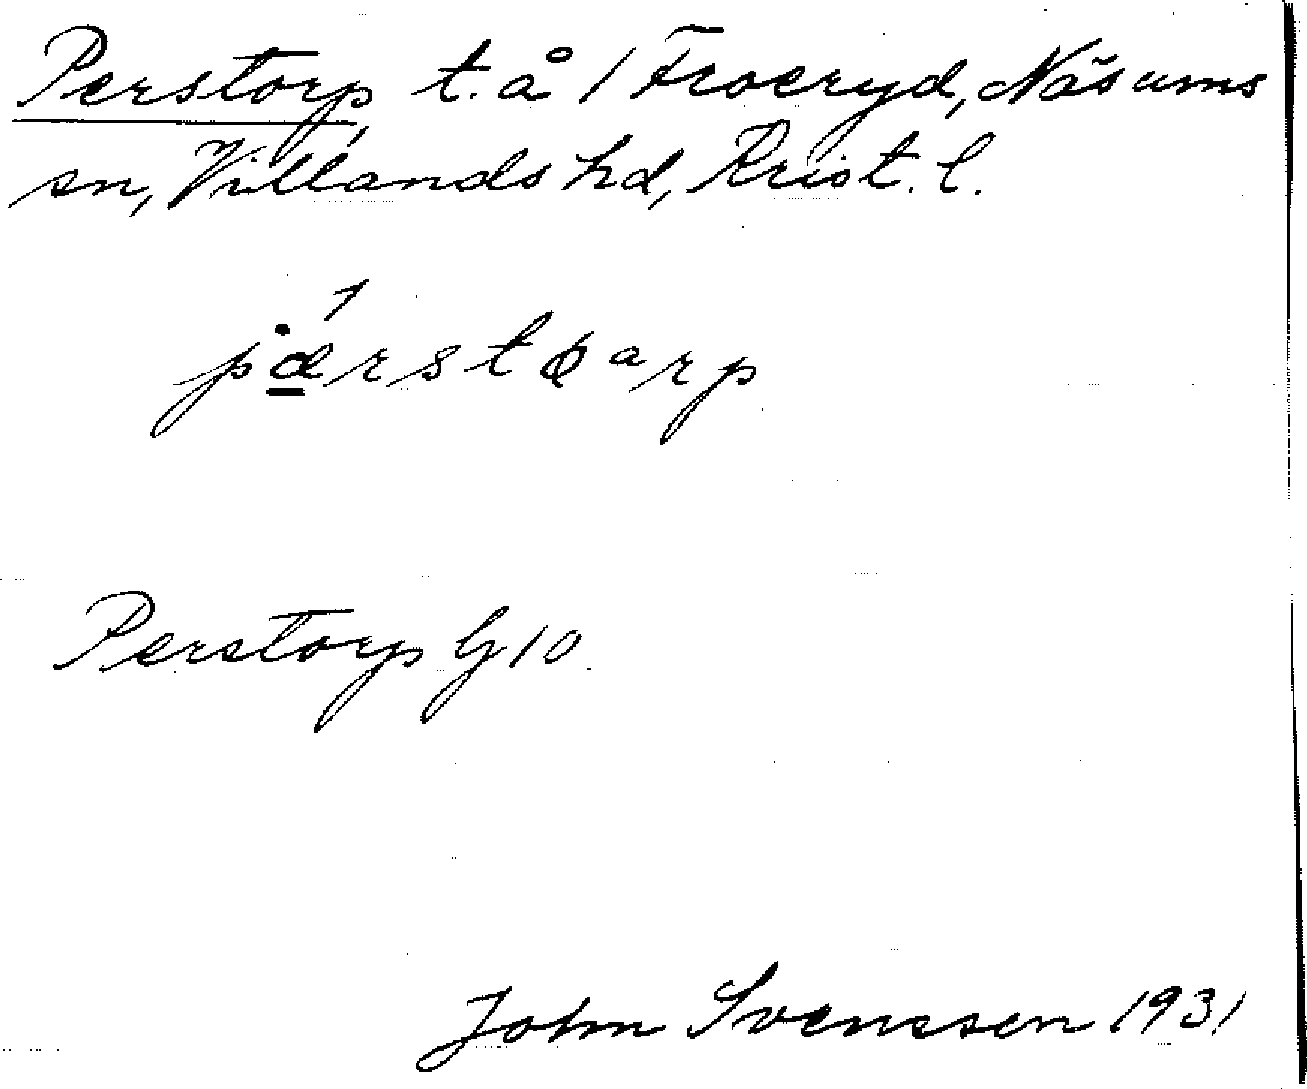 Perstorp t. å 1 Froeryd, Näsums
sn, Villands hd, Krist. l.
pærstøarp
Perstorp G 10
John Svensson 1931